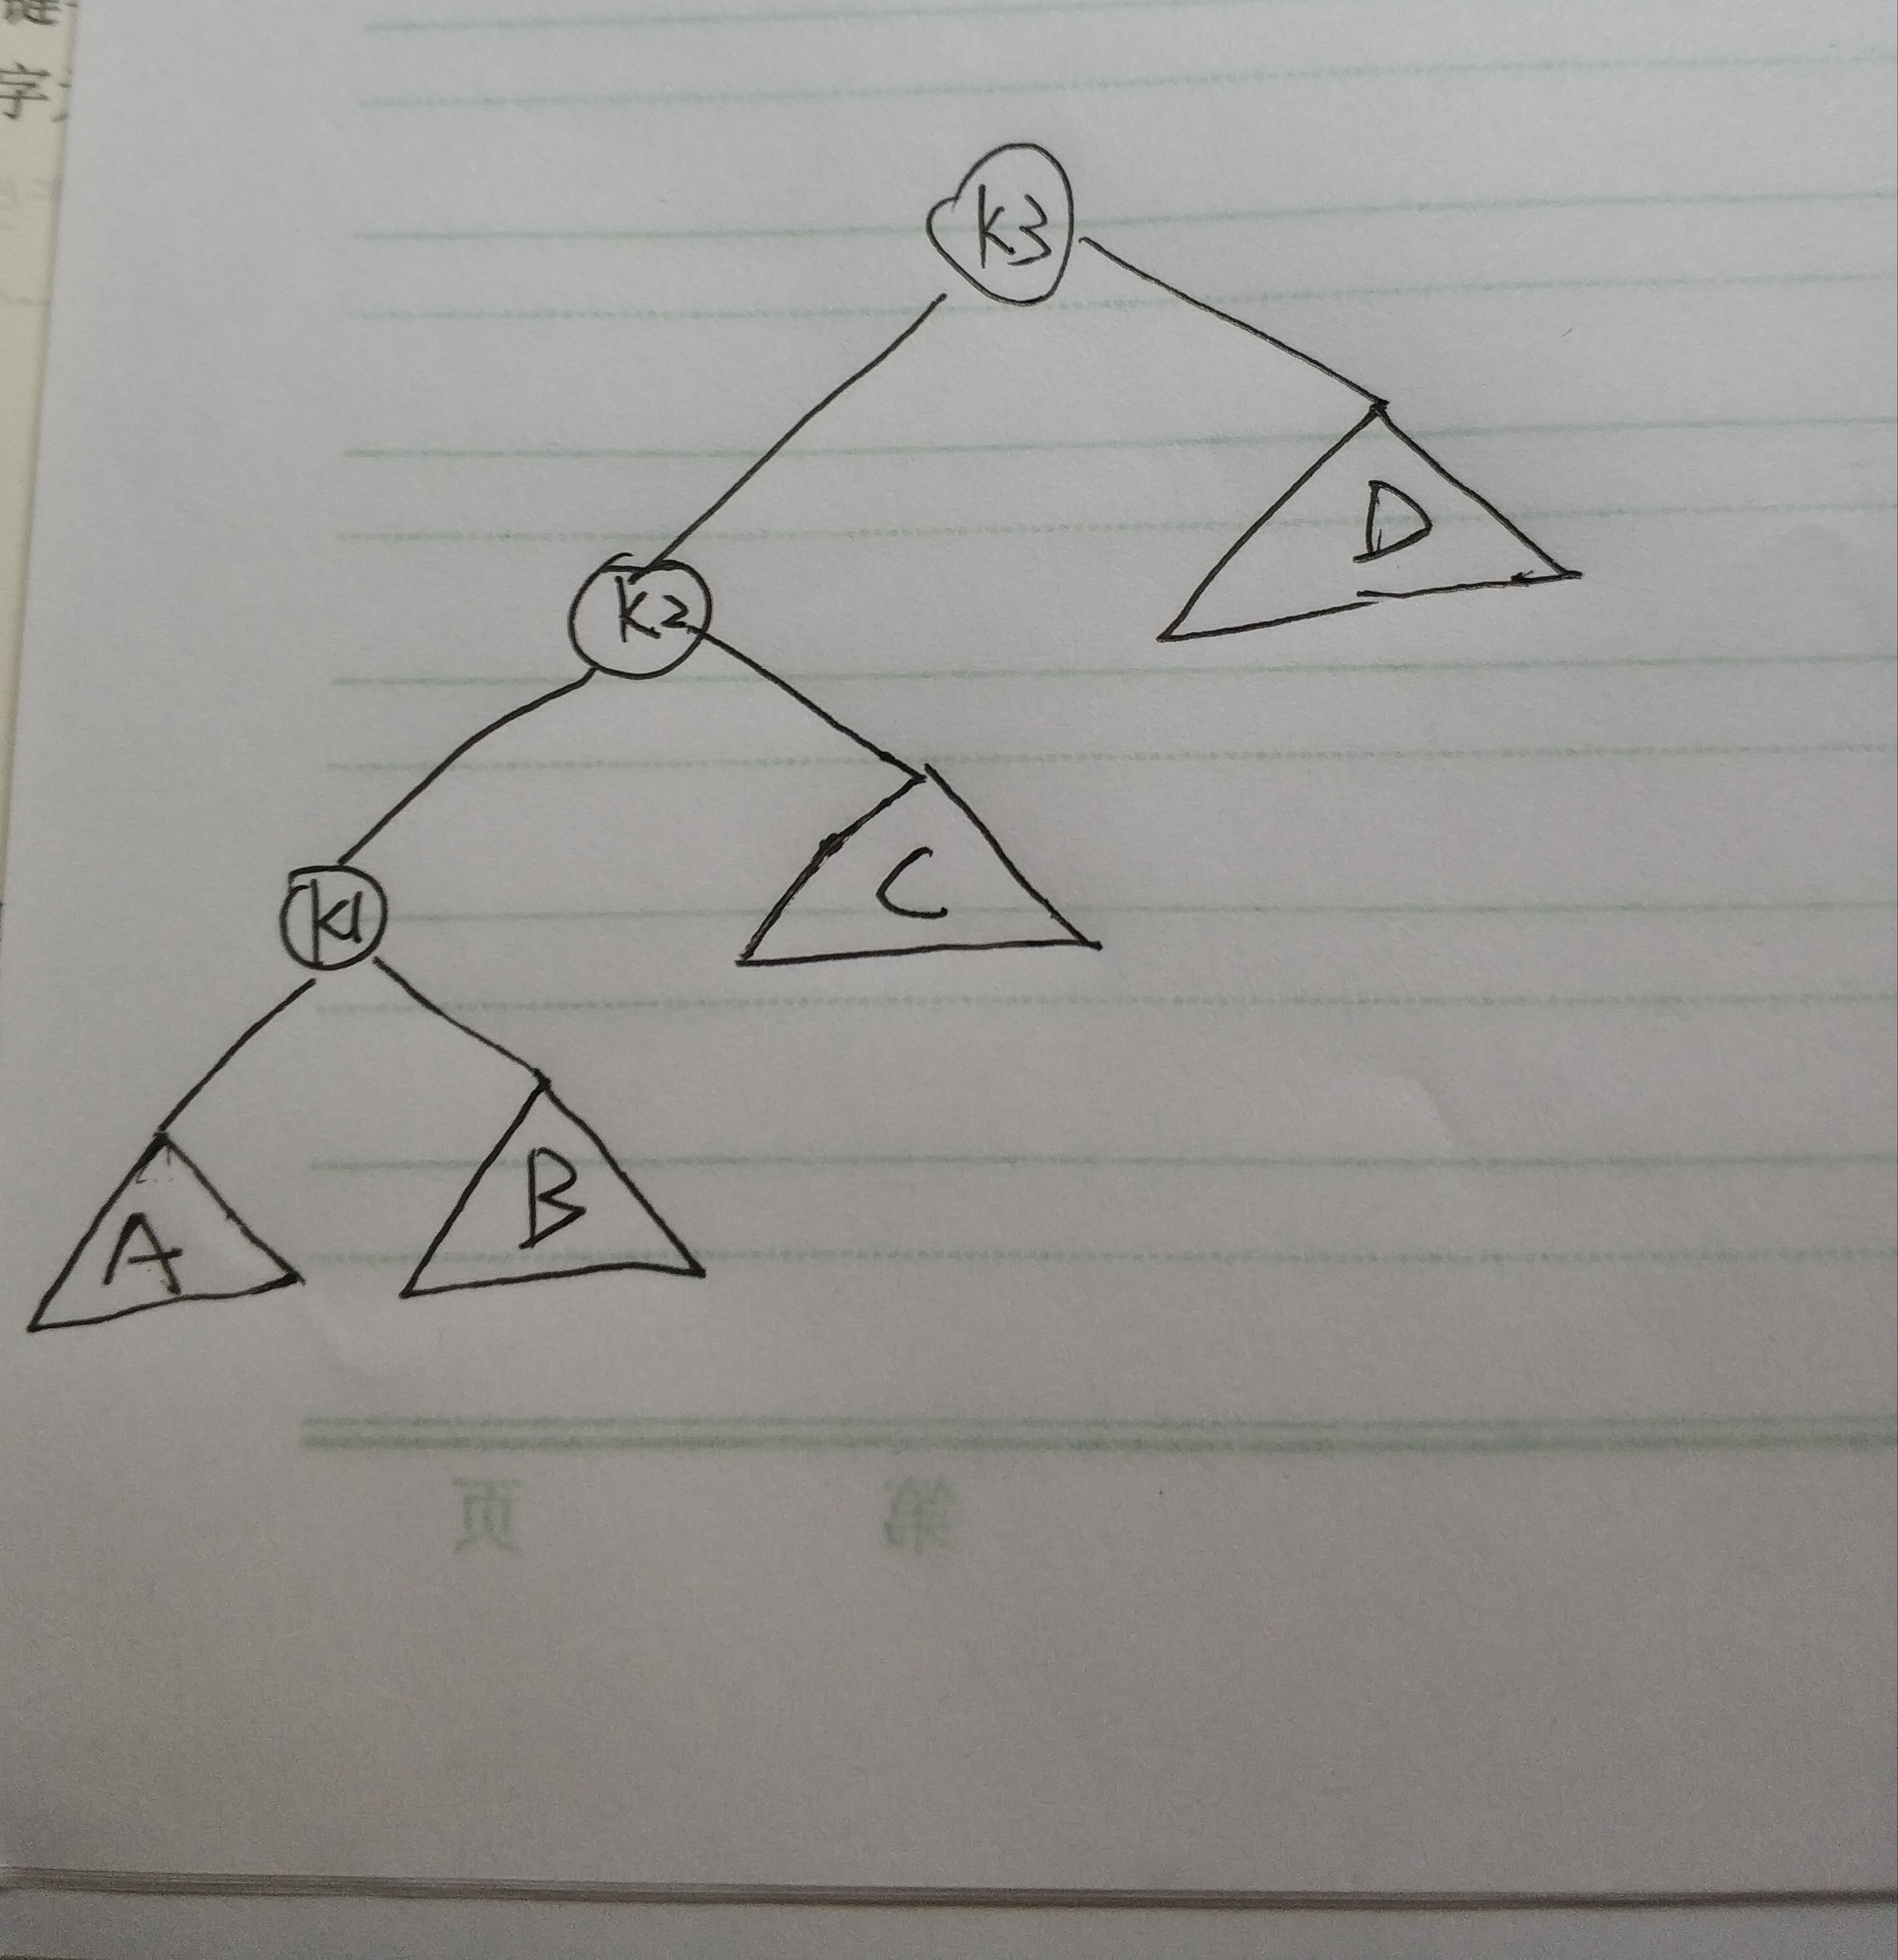 字
K3
D
K2
C
K1
B
A
页 第